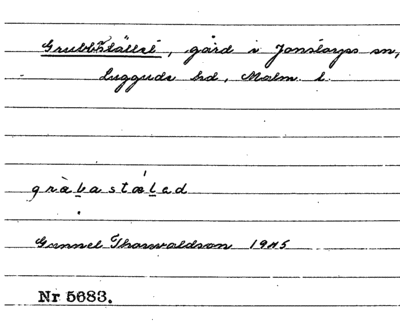 Grubbstället, gård i Jonstorps sn,
Luggude hd, Malm. l.
gràbastælad
Gunnel Thorwaldson 1945
Nr 5683.